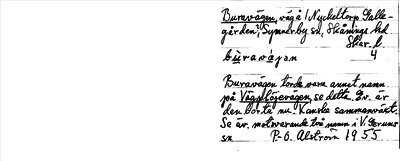 Buravägen, väg å 1 Nyckeltorp, Galle-
gården, Synnerby sn, Skånings hd
Skar. l.
buravä̀jən 4
Buravägen torde vara annat namn
på Vägalösevägen, se detta. Ev. är
den borta nu. Kanske sammanväxt.
Se äv. motsvarande två namn i V. Gerums
sn P-O. Alström 1955